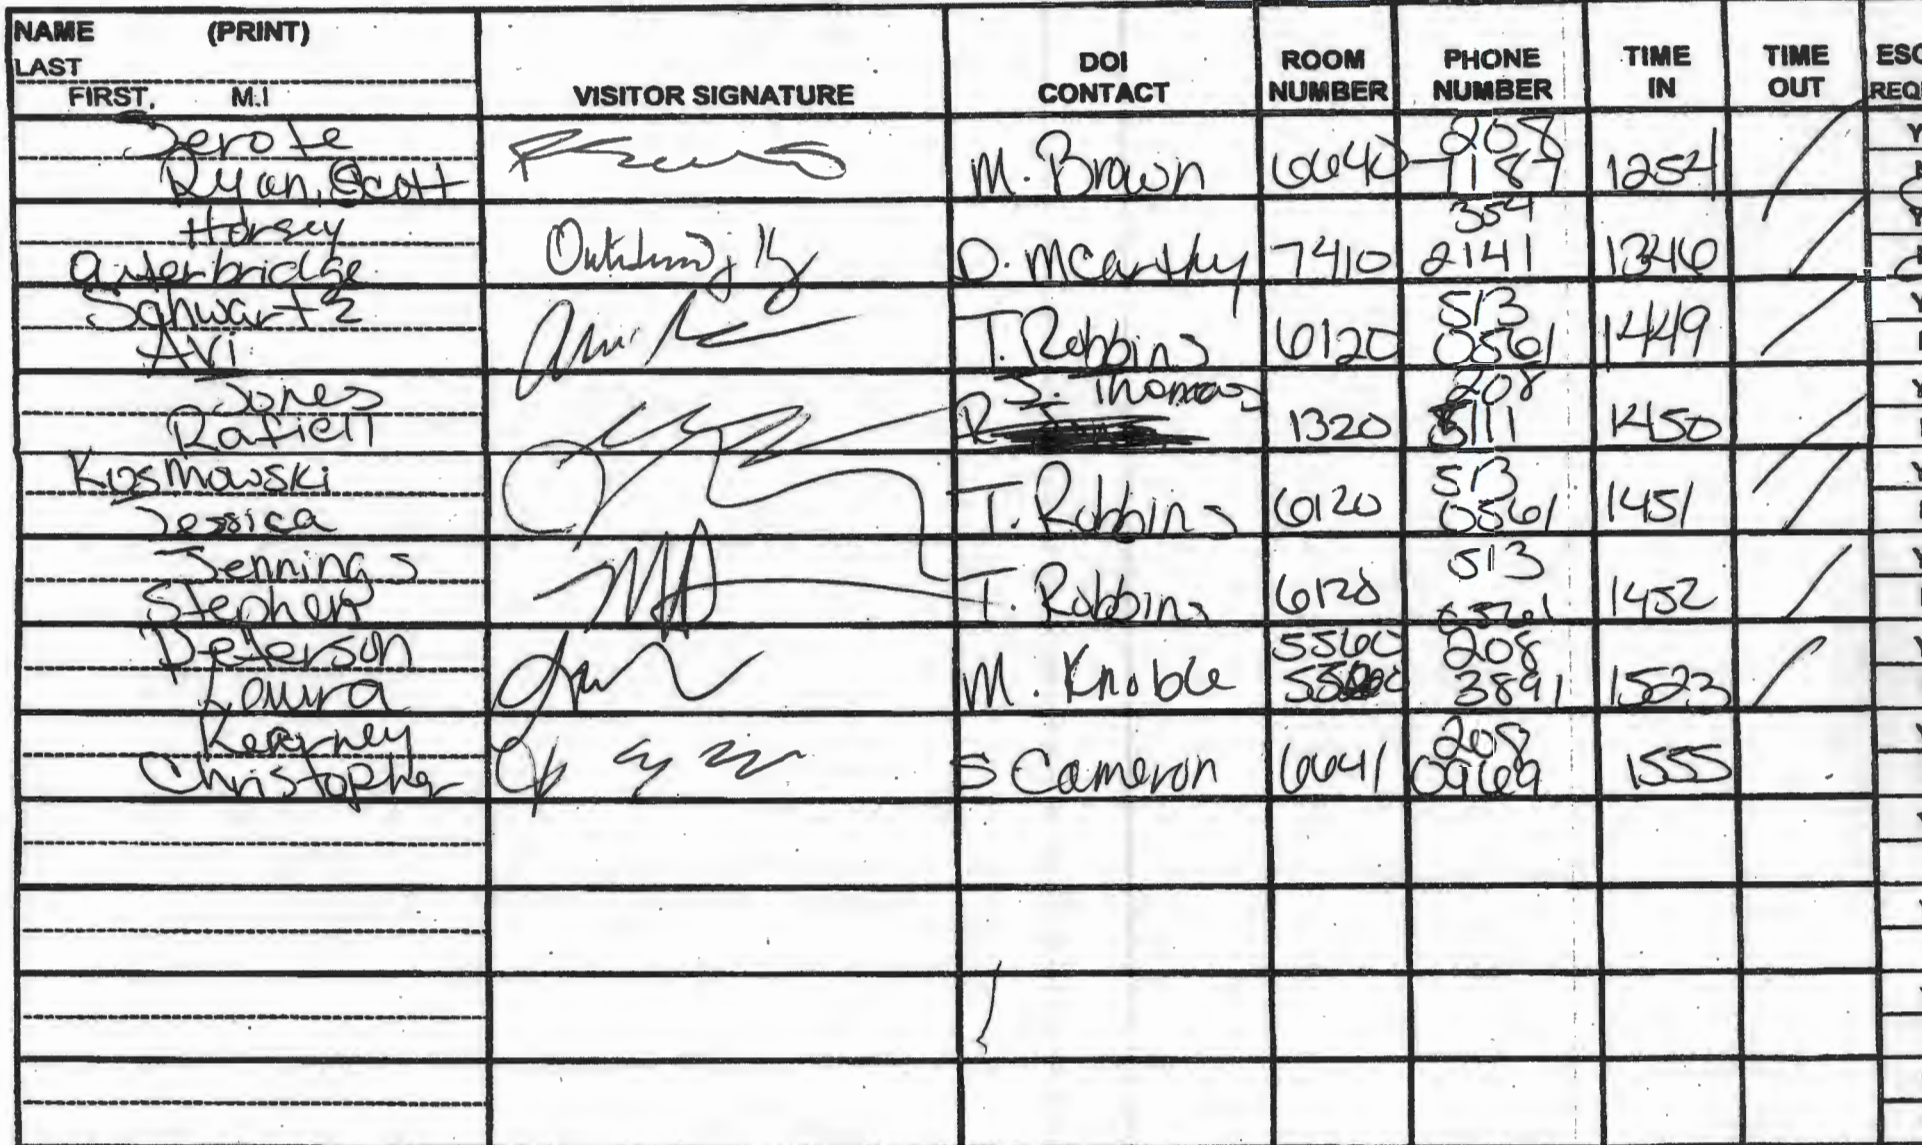 NAME (PRINT)
LAST
FIRST, M.I
VISITOR SIGNATURE
DOI
CONTACT
ROOM
NUMBER
PHONE
NUMBER
TIME
IN
TIME
OUT
ESC
REQ
Serote
Ryan, Scott
M. Brown
6640
208
7187
1254
Horsey
Outerbridge
D. McCarthy
7410
354
2141
1346
Schwartz
Avi
T. Robbins
6120
513
0561
1449
Jones
Rafiell
J. Thomas
R
1320
208
5111
1450
Kosmowski
Jessica
T. Robbins
6120
513
0561
1451
Jennings
Stephen
T. Robbins
6120
513
0561
1452
Peterson
Laura
M. Knoble
5560
208
3891
1523
Kearney
Christopher
S Cameron
6641
208
0969
1555